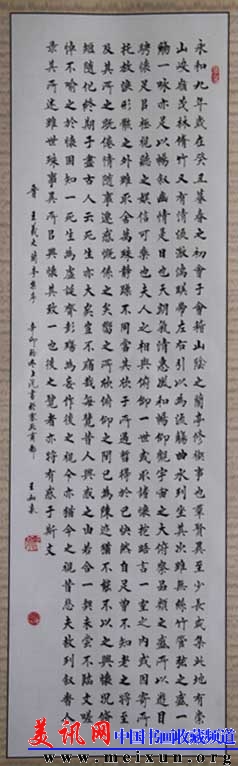 永和九年歲在癸丑暮春之初會于會稽山陰之蘭亭修禊事也群賢畢至少長咸集此地有崇
山峻嶺茂林脩竹又有清流激湍映帶左右引以為流觴曲水列坐其次雖無絲竹管弦之盛一
觴一詠亦足以暢叙幽情是日也天朗氣清惠風和暢仰觀宇宙之大俯察品類之盛所以遊目
騁懷足以極視聽之娛信可樂也夫人之相與俯仰一世或取諸懷抱晤言一室之內或因寄所
托放浪形骸之外雖趣舍萬殊靜躁不同當其欣于所遇暫得於己快然自足曾不知老之將至
及其所之既倦情隨事遷感慨係之矣向之所欣俯仰之間已為陳迹猶不能不以之興懷況脩
短隨化終期于盡古人云死生亦大矣豈不痛哉每覽昔人興感之由若合一契未嘗不臨文嗟
悼不喻之於懷固知一死生為虛誕齊彭殤為妄作後之視今亦猶今之視昔悲夫故列叙
錄其所述雖世殊事異所以興懷其致一也後之覽者亦將有感于斯文
晉 王羲之蘭亭集序 辛卯 書於 商都 王
美讯网 中国书画收藏频道
www.meixun.org